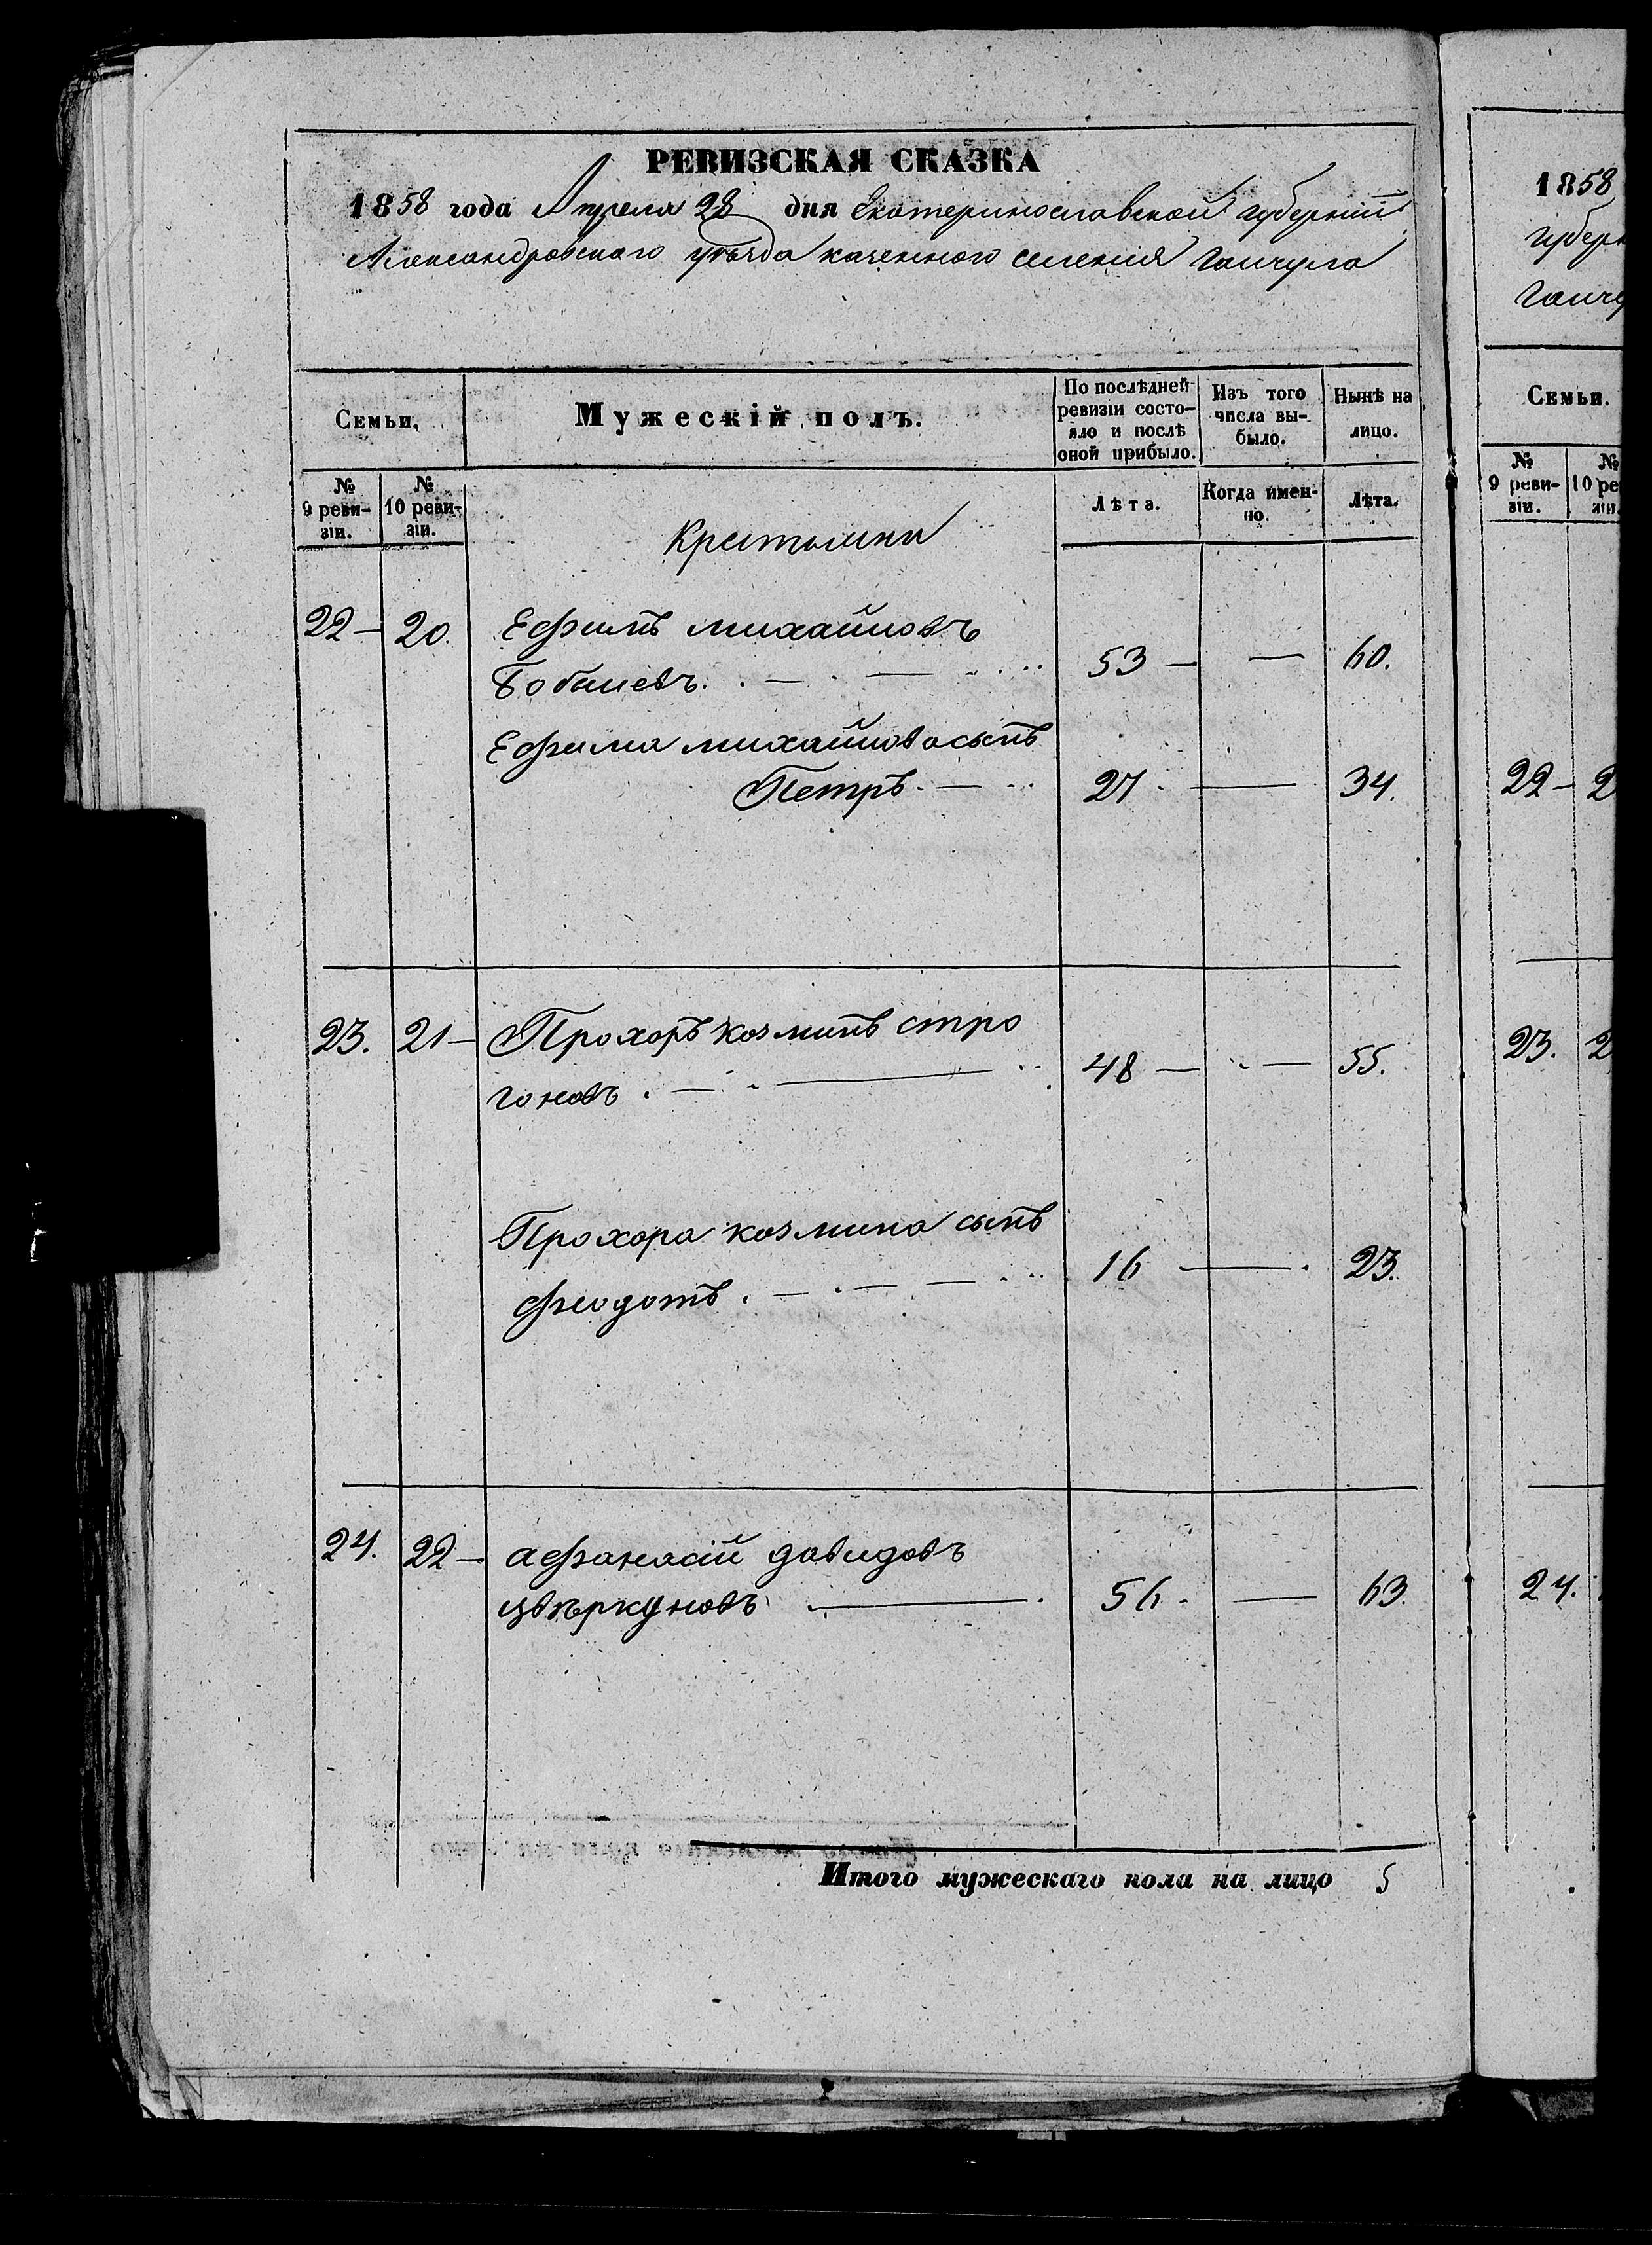 РЕВИЗСКАЯ СКАЗКА
1858 года Апреля 28 дня Екатеринославской губернии
Александровскаго уѣзда казенного селения Гайчула
Семьи,
Мужескій полъ.
По послѣдней ревизіи состояло и послѣ оной прибыло.
Изъ того числа выбыло.
Нынѣ на лицо.
№ 9 ревизіи.
№ 10 ревизіи.
Лѣта.
Когда именно.
Лѣта.
Крестьяни
22 – 20. Ефимъ михайловъ
Бобылевъ. 53 – — 60.
Ефима михайлова сынъ
Петръ. 27. — 34.
23. 21 – Прохоръ козминъ стро
гоновъ. 48 — — 55.
Прохора козмина сынъ
феодотъ. 16 — 23.
24. 22 – афанасий давидовъ
цвѣркуновъ 56. — 63.
Итого мужескаго пола на лицо 5
1858
губерн
Гайчу
Семьи.
№ 9 ревизіи.
№ 10 ре
зіи.
22 – 2
23. 2
24.